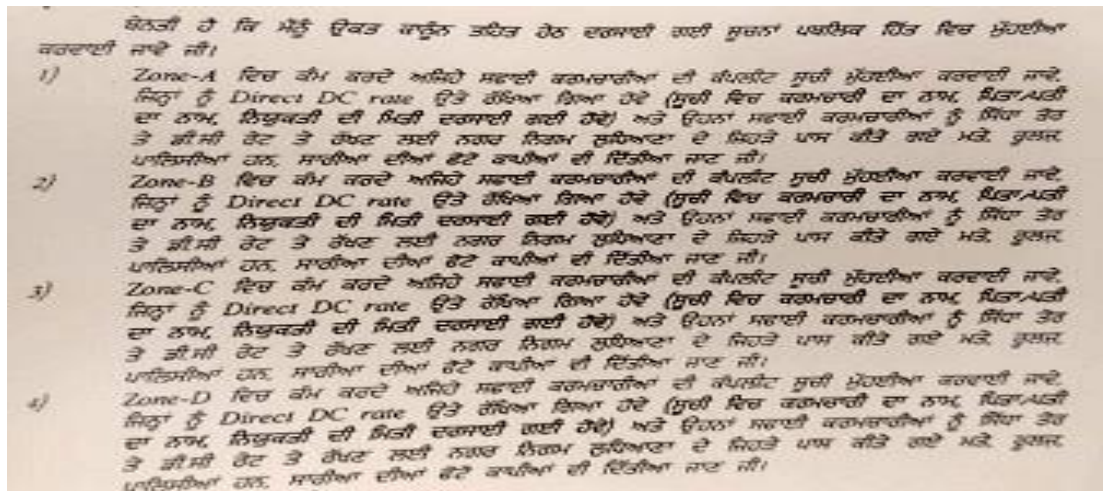 ਬੇਨਤੀ ਹੈ ਕਿ ਮੈਨੂੰ ਉਕਤ ਕਾਨੂੰਨ ਤਹਿਤ ਹੇਠ ਦਰਸਾਈ ਗਈ ਸੂਚਨਾਂ ਪਬਲਿਕ ਹਿੱਤ ਵਿਚ ਮੁੱਹਈਆ
ਕਰਵਾਈ ਜਾਵੇ ਜੀ।
1) Zone-A ਵਿਚ ਕੰਮ ਕਰਦੇ ਅਜਿਹੇ ਸਫਾਈ ਕਰਮਚਾਰੀਆਂ ਦੀ ਕੰਪਲੀਟ ਸੂਚੀ ਮੁੱਹਈਆ ਕਰਵਾਈ ਜਾਵੇ,
ਜਿਨ੍ਹਾਂ ਨੂੰ Direct DC rate ਉੱਤੇ ਰੱਖਿਆ ਗਿਆ ਹੋਵੇ (ਸੂਚੀ ਵਿਚ ਕਰਮਚਾਰੀ ਦਾ ਨਾਮ, ਪਿਤਾ/ਪਤੀ
ਦਾ ਨਾਮ, ਨਿਯੁਕਤੀ ਦੀ ਮਿਤੀ ਦਰਸਾਈ ਗਈ ਹੋਵੇ) ਅਤੇ ਉਹਨਾਂ ਸਫਾਈ ਕਰਮਚਾਰੀਆਂ ਨੂੰ ਸਿੱਧਾ ਤੋਰ
ਤੇ ਡੀ.ਸੀ ਰੇਟ ਤੇ ਰੱਖਣ ਲਈ ਨਗਰ ਨਿਗਮ ਲੁਧਿਆਣਾ ਦੇ ਜਿਹੜੇ ਪਾਸ ਕੀਤੇ ਗਏ ਮਤੇ, ਰੂਲਜ,
ਪਾਲਿਸੀਆਂ ਹਨ, ਸਾਰੀਆ ਦੀਆਂ ਫੋਟੋ ਕਾਪੀਆਂ ਵੀ ਦਿੱਤੀਆ ਜਾਣ ਜੀ।
2) Zone-B ਵਿਚ ਕੰਮ ਕਰਦੇ ਅਜਿਹੇ ਸਫਾਈ ਕਰਮਚਾਰੀਆਂ ਦੀ ਕੰਪਲੀਟ ਸੂਚੀ ਮੁੱਹਈਆ ਕਰਵਾਈ ਜਾਵੇ,
ਜਿਨ੍ਹਾਂ ਨੂੰ Direct DC rate ਉੱਤੇ ਰੱਖਿਆ ਗਿਆ ਹੋਵੇ (ਸੂਚੀ ਵਿਚ ਕਰਮਚਾਰੀ ਦਾ ਨਾਮ, ਪਿਤਾ/ਪਤੀ
ਦਾ ਨਾਮ, ਨਿਯੁਕਤੀ ਦੀ ਮਿਤੀ ਦਰਸਾਈ ਗਈ ਹੋਵੇ) ਅਤੇ ਉਹਨਾਂ ਸਫਾਈ ਕਰਮਚਾਰੀਆਂ ਨੂੰ ਸਿੱਧਾ ਤੋਰ
ਤੇ ਡੀ.ਸੀ ਰੇਟ ਤੇ ਰੱਖਣ ਲਈ ਨਗਰ ਨਿਗਮ ਲੁਧਿਆਣਾ ਦੇ ਜਿਹੜੇ ਪਾਸ ਕੀਤੇ ਗਏ ਮਤੇ, ਰੂਲਜ,
ਪਾਲਿਸੀਆਂ ਹਨ, ਸਾਰੀਆ ਦੀਆਂ ਫੋਟੋ ਕਾਪੀਆਂ ਵੀ ਦਿੱਤੀਆ ਜਾਣ ਜੀ।
3) Zone-C ਵਿਚ ਕੰਮ ਕਰਦੇ ਅਜਿਹੇ ਸਫਾਈ ਕਰਮਚਾਰੀਆਂ ਦੀ ਕੰਪਲੀਟ ਸੂਚੀ ਮੁੱਹਈਆ ਕਰਵਾਈ ਜਾਵੇ,
ਜਿਨ੍ਹਾਂ ਨੂੰ Direct DC rate ਉੱਤੇ ਰੱਖਿਆ ਗਿਆ ਹੋਵੇ (ਸੂਚੀ ਵਿਚ ਕਰਮਚਾਰੀ ਦਾ ਨਾਮ, ਪਿਤਾ/ਪਤੀ
ਦਾ ਨਾਮ, ਨਿਯੁਕਤੀ ਦੀ ਮਿਤੀ ਦਰਸਾਈ ਗਈ ਹੋਵੇ) ਅਤੇ ਉਹਨਾਂ ਸਫਾਈ ਕਰਮਚਾਰੀਆਂ ਨੂੰ ਸਿੱਧਾ ਤੋਰ
ਤੇ ਡੀ.ਸੀ ਰੇਟ ਤੇ ਰੱਖਣ ਲਈ ਨਗਰ ਨਿਗਮ ਲੁਧਿਆਣਾ ਦੇ ਜਿਹੜੇ ਪਾਸ ਕੀਤੇ ਗਏ ਮਤੇ, ਰੂਲਜ,
ਪਾਲਿਸੀਆਂ ਹਨ, ਸਾਰੀਆ ਦੀਆਂ ਫੋਟੋ ਕਾਪੀਆਂ ਵੀ ਦਿੱਤੀਆ ਜਾਣ ਜੀ।
4) Zone-D ਵਿਚ ਕੰਮ ਕਰਦੇ ਅਜਿਹੇ ਸਫਾਈ ਕਰਮਚਾਰੀਆਂ ਦੀ ਕੰਪਲੀਟ ਸੂਚੀ ਮੁੱਹਈਆ ਕਰਵਾਈ ਜਾਵੇ,
ਜਿਨ੍ਹਾਂ ਨੂੰ Direct DC rate ਉੱਤੇ ਰੱਖਿਆ ਗਿਆ ਹੋਵੇ (ਸੂਚੀ ਵਿਚ ਕਰਮਚਾਰੀ ਦਾ ਨਾਮ, ਪਿਤਾ/ਪਤੀ
ਦਾ ਨਾਮ, ਨਿਯੁਕਤੀ ਦੀ ਮਿਤੀ ਦਰਸਾਈ ਗਈ ਹੋਵੇ) ਅਤੇ ਉਹਨਾਂ ਸਫਾਈ ਕਰਮਚਾਰੀਆਂ ਨੂੰ ਸਿੱਧਾ ਤੋਰ
ਤੇ ਡੀ.ਸੀ ਰੇਟ ਤੇ ਰੱਖਣ ਲਈ ਨਗਰ ਨਿਗਮ ਲੁਧਿਆਣਾ ਦੇ ਜਿਹੜੇ ਪਾਸ ਕੀਤੇ ਗਏ ਮਤੇ, ਰੂਲਜ,
ਪਾਲਿਸੀਆਂ ਹਨ, ਸਾਰੀਆ ਦੀਆਂ ਫੋਟੋ ਕਾਪੀਆਂ ਵੀ ਦਿੱਤੀਆ ਜਾਣ ਜੀ।